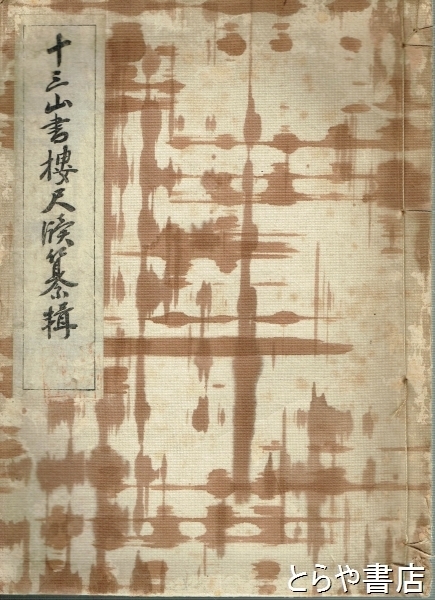 十三山書樓尺牘纂輯
とらや書店